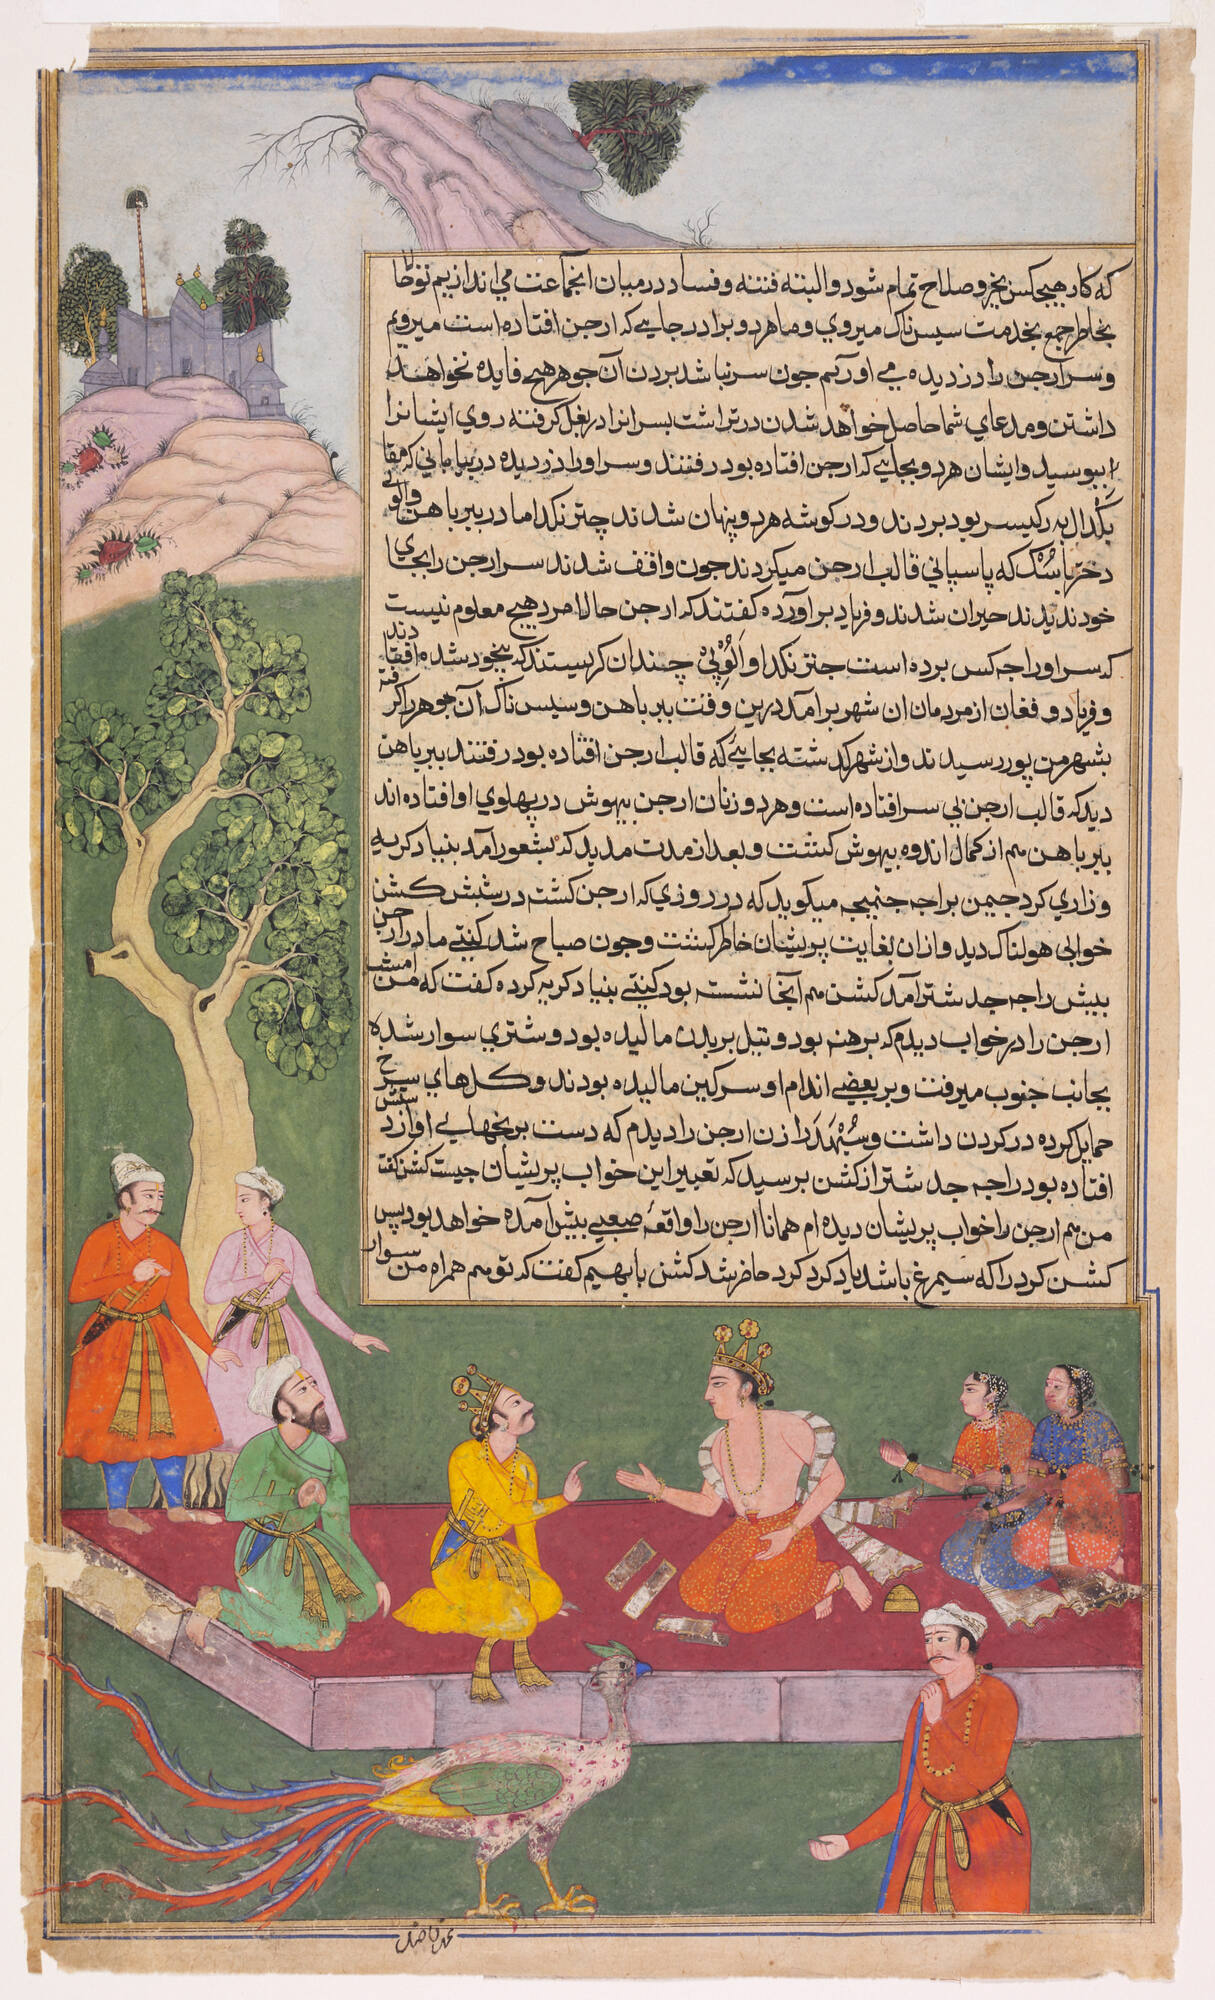 که کار هیچکس بخیر و صلاح تمام شود والبته فتنه و فساد در میان انجماعت می اندازیم تو
بخاطر جمع بخدمت سیس ناک میروی و ما هر دو برادر جایی که ارجن افتاده است میرویم
و سر ارجن را دزدیده می اوریم چون سر نباشد بردن آن جوهر هیچ فایده نخواهد
داشتن و مدعای شما حاصل خواهد شدن پسرانرا در بغل گرفته روی ایشانرا
ببوسید و ایشان هر دو بجایی که ارجن افتاده بود رفتند و سر او را دزدیده در بیابانی که
بود بردند و در کوشه هر دو پنهان شدند چترنکدا مادر ببرباهن و الوپی
دختر باسک که پاسبانی قالب ارجن میکردند چون واقف شدند سر ارجن را بجای
خود ندیدند حیران شدند و فریاد براورده کفتند که ارجن حالا مرد هیچ معلوم نیست
که سر او را چه کس برده است چترنکدا و الوپی چندان کریستند که بیخود شده افتادند
و فریاد و فغان از مردمان ان شهر برآمد درین وقت ببرباهن و سیس ناک آن جوهر را کرفته
بشهر من پور رسیدند و از شهر کدشته بجایئے که قالب ارجن افتاده بود رفتند ببرباهن
دید که قالب ارجن بی سر افتاده است و هر دو زنان ارجن بیهوش در پهلوی او افتاده اند
ببرباهن هم از کمال اندوه بیهوش کشت و بعد از مدت مدید که بشعور آمد بنیاد کریه
و زاری کرد جیمن براجه جنمیجه میکوید که در روزی که ارجن کشته شد کشن
خوابی هولناک دید و ازان بغایت پریشان خاطر کشت و چون صباح شد کنتی مادر ارجن
پیش راجه جدشتر آمد کشن هم آنجا نشسته بود کنتی بنیاد کریه کرده کفت که من امشب
ارجن را در خواب دیدم که برهنه بود و تیل بر بدن مالیده بود و شتری سوار شده
بجانب جنوب میرفت و بر بعضے اندام او سرکین مالیده بودند و کلهای سرخ
حمایل کرده در کردن داشت و سبهدرا زن ارجن را دیدم که دست برنجهایے او از دستش
افتاده بود راجه جدشتر از کشن پرسید که تعبیر این خواب پریشان چیست کشن کفت
من هم ارجن را خواب پریشان دیده ام همانا ارجن را واقعه صعبے پیش آمده خواهد بود پس
کشن کرد را که سیمرغ باشد یاد کرد کرد حاضر شد کشن با بهیم کفت که تو هم همراه من سوار